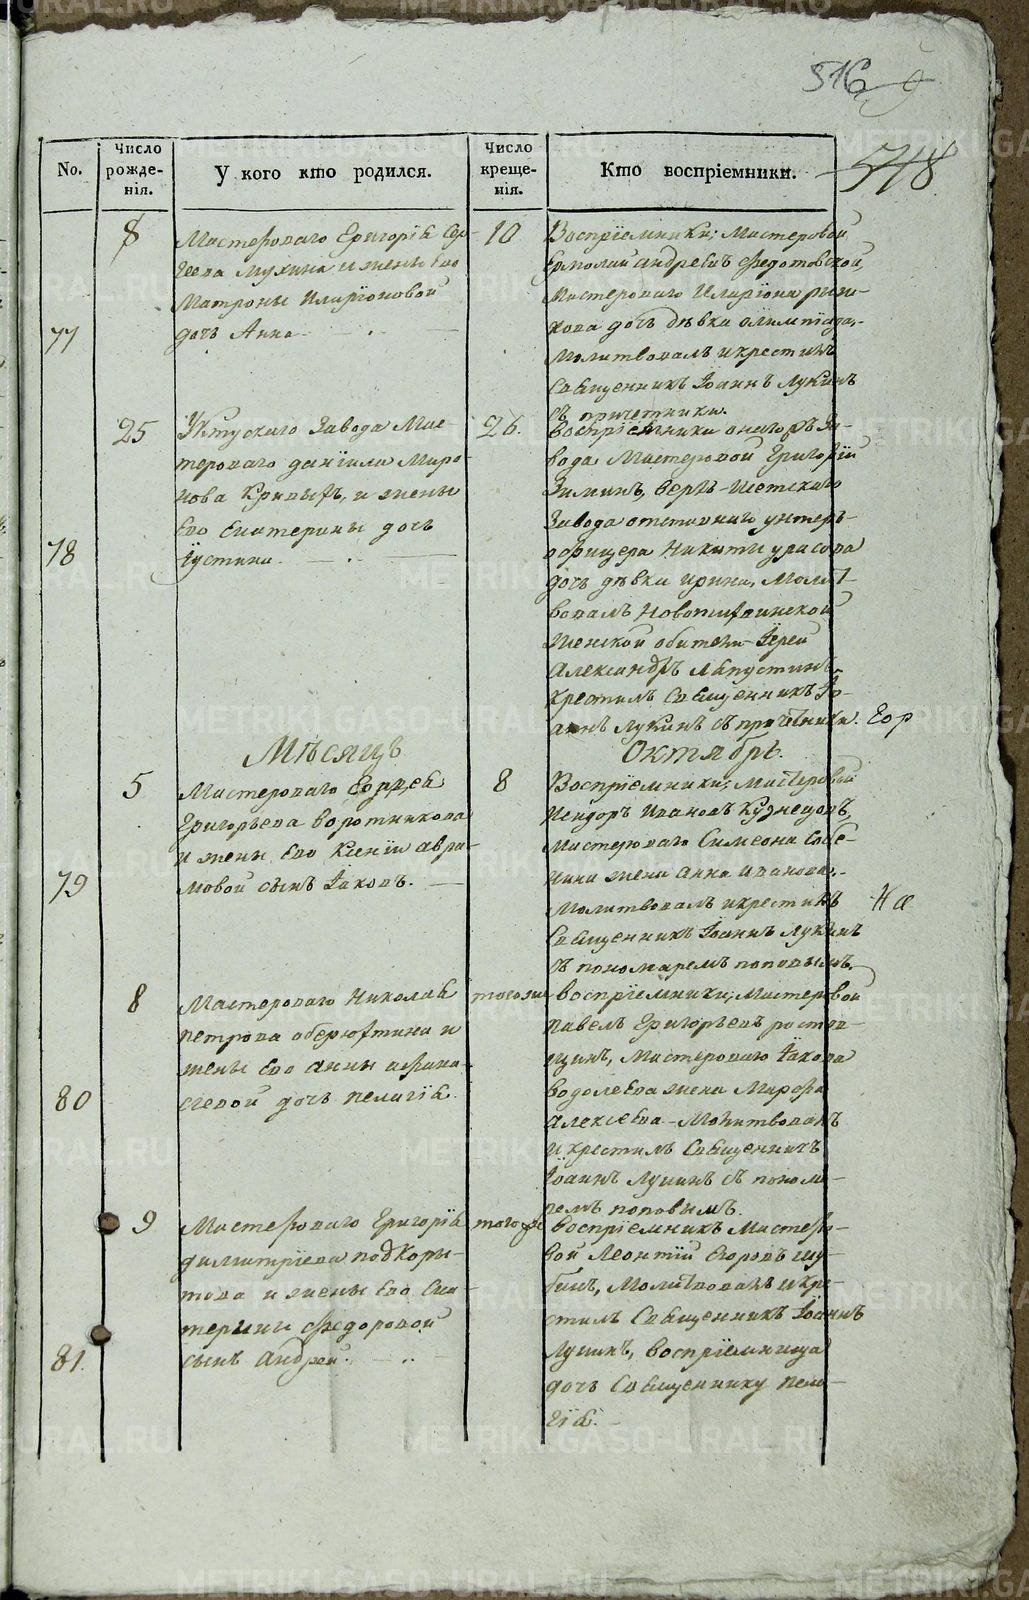 516
518
No.
Число рожде-нія.
У кого кто родился.
Число креще-нія.
Кто воспріемники.
77
8
Мастероваго Григорія Сер-
геева Мухина и жены Его
Матроны Иларіоновой
дочь Анна
10
Воспріемники; Мастеровой
Ермолай Андреевъ Федотовской,
Мастероваго Иларіона
дочь девка Олимпіада,
Молитвовалъ и крестилъ
Священникъ Іоаннъ Лукинъ
съ причетники.
78
25
Уктускаго Завода Мас-
тероваго Даніила Миро-
нова Кривыхъ, и жены
Его Екатерины дочь
Іустина
26.
Воспріемники онаго жъ За-
вода Мастеровой Григорій
Зиминъ, Верхъ-Исетскаго
Завода отставнаго унтеръ-
офицера Никиты
дочь девка Ирина, Молит-
вовалъ Новотихвинской
Женской обители Іерей
Александръ Лапустинъ,
крестилъ Священникъ Іо-
аннъ Лукинъ съ причетники.
Гор
Месяцъ
Октябрь.
79
5
Мастероваго Гордея
Григорьева Воротникова
и жены Его Ксеніи Авра-
мовой сынъ Іаковъ.
8
Воспріемники; Мастеровой
Исидоръ Ивановъ Кузнецовъ,
Мастероваго Симеона Собе-
нина жена Анна Иванова,
Молитвовалъ и крестилъ
Священникъ Іоаннъ Лукинъ
съ пономаремъ Поповымъ.
На
80
8
Мастероваго Николая
Петрова Оберюхтина и
жены Его Анны Афана-
сіевой дочь Пелагія.
тогоже
Воспріемники; Мастеровой
Павелъ Григорьевъ Ростов-
щинъ, Мастероваго Іакова
Водолеева жена Марфа
Алексеева Молитвовалъ
и крестилъ Священникъ
Іоаннъ Лукинъ съ понома-
ремъ Поповымъ.
81.
9
Мастероваго Григорія
Димитріева Подкоры-
това и жены Его Ека-
терины Федоровой
сынъ Андрей.
тогоже
Воспріемникъ Мастеро-
вой Леонтій Егоровъ Шу-
бинъ, Молитвовалъ и кре-
стилъ Священникъ Іоаннъ
Лукинъ, Воспріемница
дочь Священнику Пела-
гія.
METRIKI.GASO-URAL.RU